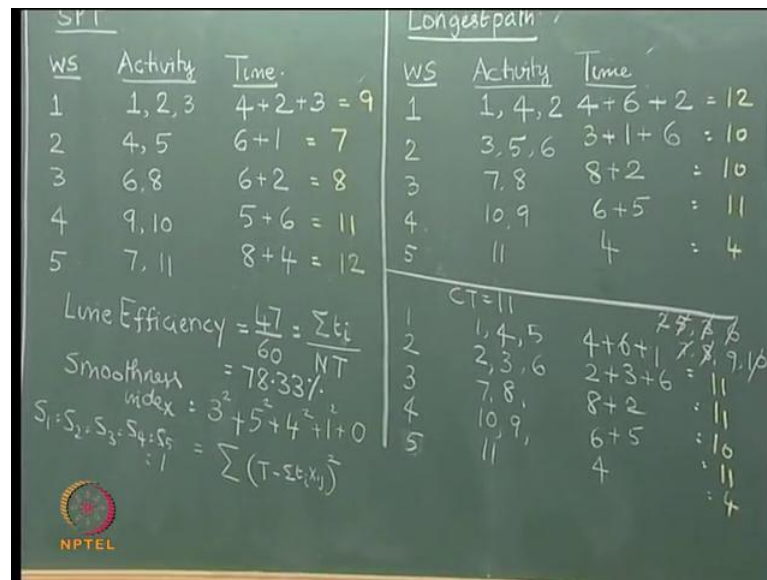 SPT
WS Activity Time.
1 1, 2, 3 4+2+3 = 9
2 4, 5 6+1 = 7
3 6, 8 6+2 = 8
4 9, 10 5+6 = 11
5 7, 11 8+4 = 12
Line Efficiency = 47/60 = Σti/NT
= 78.33%
Smoothness index = 3² + 5² + 4² + 1² + 0
S1 = S2 = S3 = S4 = S5 = 1
= Σ (T - Σtixij)²
Longest path
WS Activity Time
1 1, 4, 2 4+6+2 = 12
2 3, 5, 6 3+1+6 : 10
3 7, 8 8+2 : 10
4. 10, 9 6+5 : 11
5 11 4 : 4
CT = 11
7, 8, 9, 10
1 1, 4, 5 4+6+1 = 11
2 2, 3, 6 2+3+6 : 11
3 7, 8, 8+2 : 10
4 10, 9, 6+5 : 11
5 11 4 : 4
NPTEL